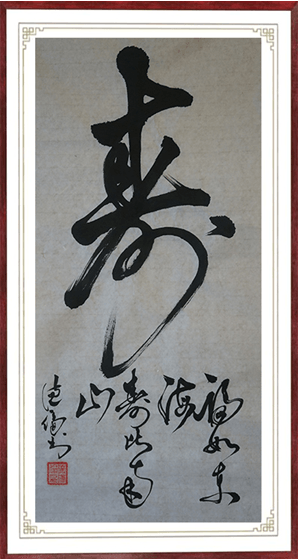 寿
福如东
海
寿比南
山
书